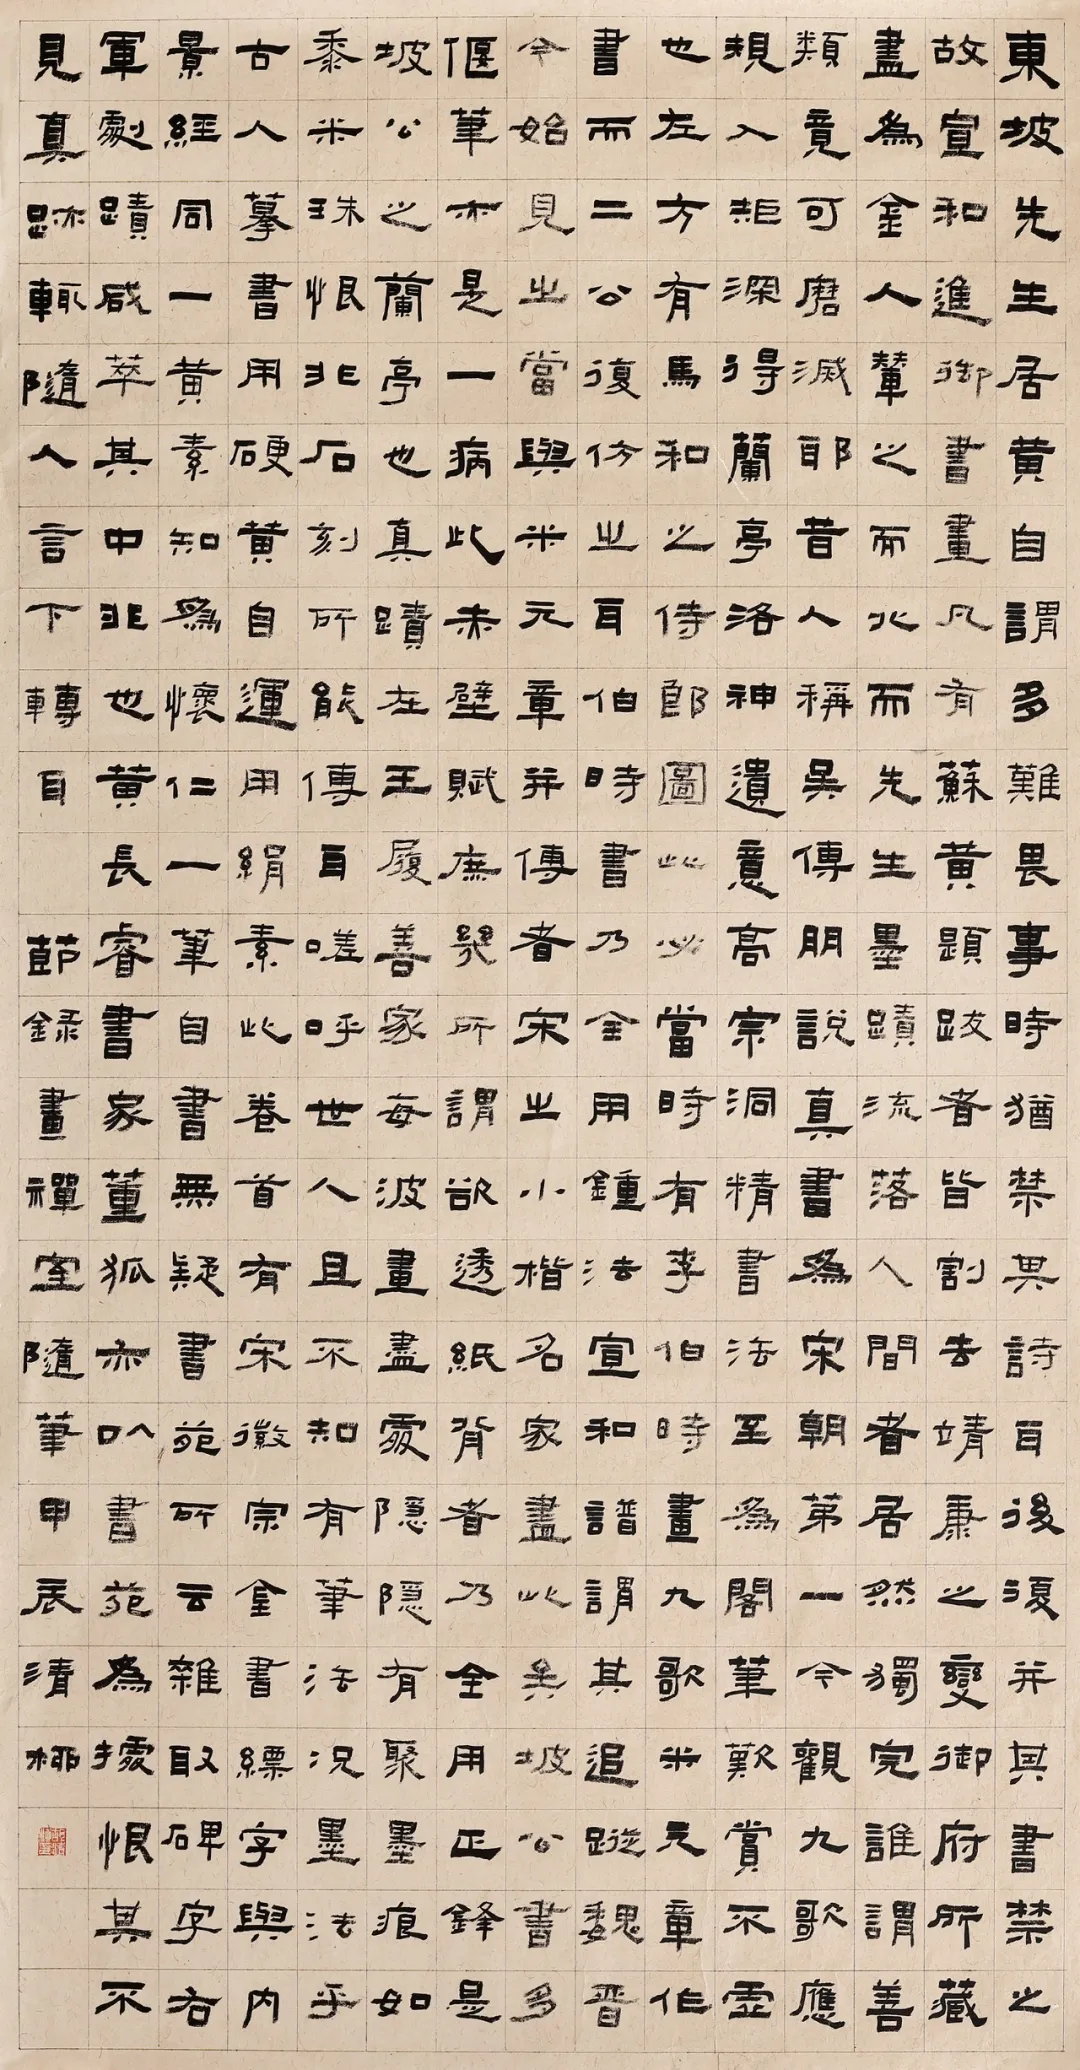 東坡先生居黄自謂多難畏事時猶禁其詩日後復并其書禁之
故宣和進御書畫凡有蘇黄題跋者皆割去靖康之變御府所藏
盡為金人輦之而北而先生墨蹟流落人間者居然獨完誰謂善
類竟可磨滅耶昔人稱吳傅朋說真書為宋朝第一今觀九歌應
規入矩深得蘭亭洛神遺意高宗洞精書法至為閣筆歎賞不虛
也左方有馬和之侍郎圖此必當時有李伯時畫九歌米元章作
書而二公復仿之耳伯時書乃全用鍾法宣和譜謂其追蹤魏晋
今始見之當與米元章并傳者宋之小楷名家盡此矣坡公書多
偃筆亦是一病此赤壁賦庶幾所謂欲透紙背者乃全用正鋒是
坡公之蘭亭也真蹟在王履善家每波畫盡處隱隱有聚墨痕如
黍米珠恨非石刻所能傳耳嗟呼世人且不知有筆法況墨法乎
古人摹書用硬黄自運用絹素此卷首有宋徽宗金書縹字與内
景經同一黄素知為懷仁一筆自書無疑書苑所云雜取碑字右
軍劇蹟咸萃其中非也黄長睿書家董狐亦以書苑為據恨其不
見真跡輒隨人言下轉耳 節録畫禪室隨筆甲辰清柳